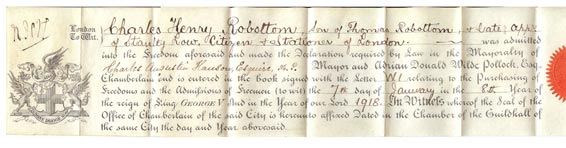 London
To Wit.
Charles Henry Robottom, Son of Thomas Robottom, & late Appr
of Stanley Row, Citizen & Stationer of London. was admitted
into the Freedom aforesaid and made the Declaration required by Law in the Mayoralty of
Charles Augustin Hanson Esquire, M.P. Mayor and Adrian Donald Wilde Pollock, Esq.
Chamberlain and is entered in the book signed with the Letter relating to the Purchasing of
Freedoms and the Admissions of Freemen (to wit) the 7th day of January in the 8th Year of
the reign of King GEORGE V And in the Year of our Lord 1918. In Witness whereof the Seal of the
Office of Chamberlain of the said City is hereunto affixed Dated in the Chamber of the Guildhall of
the same City the day and Year abovesaid.